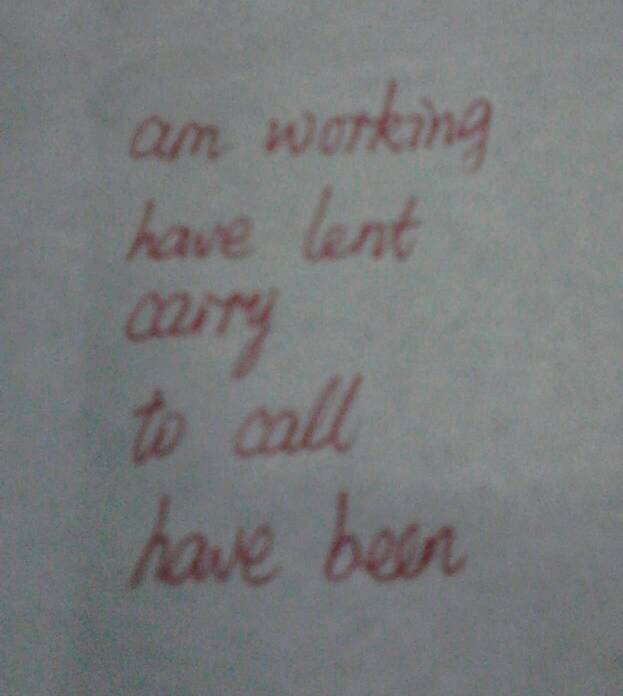 am working
have lent
carry
to call
have been